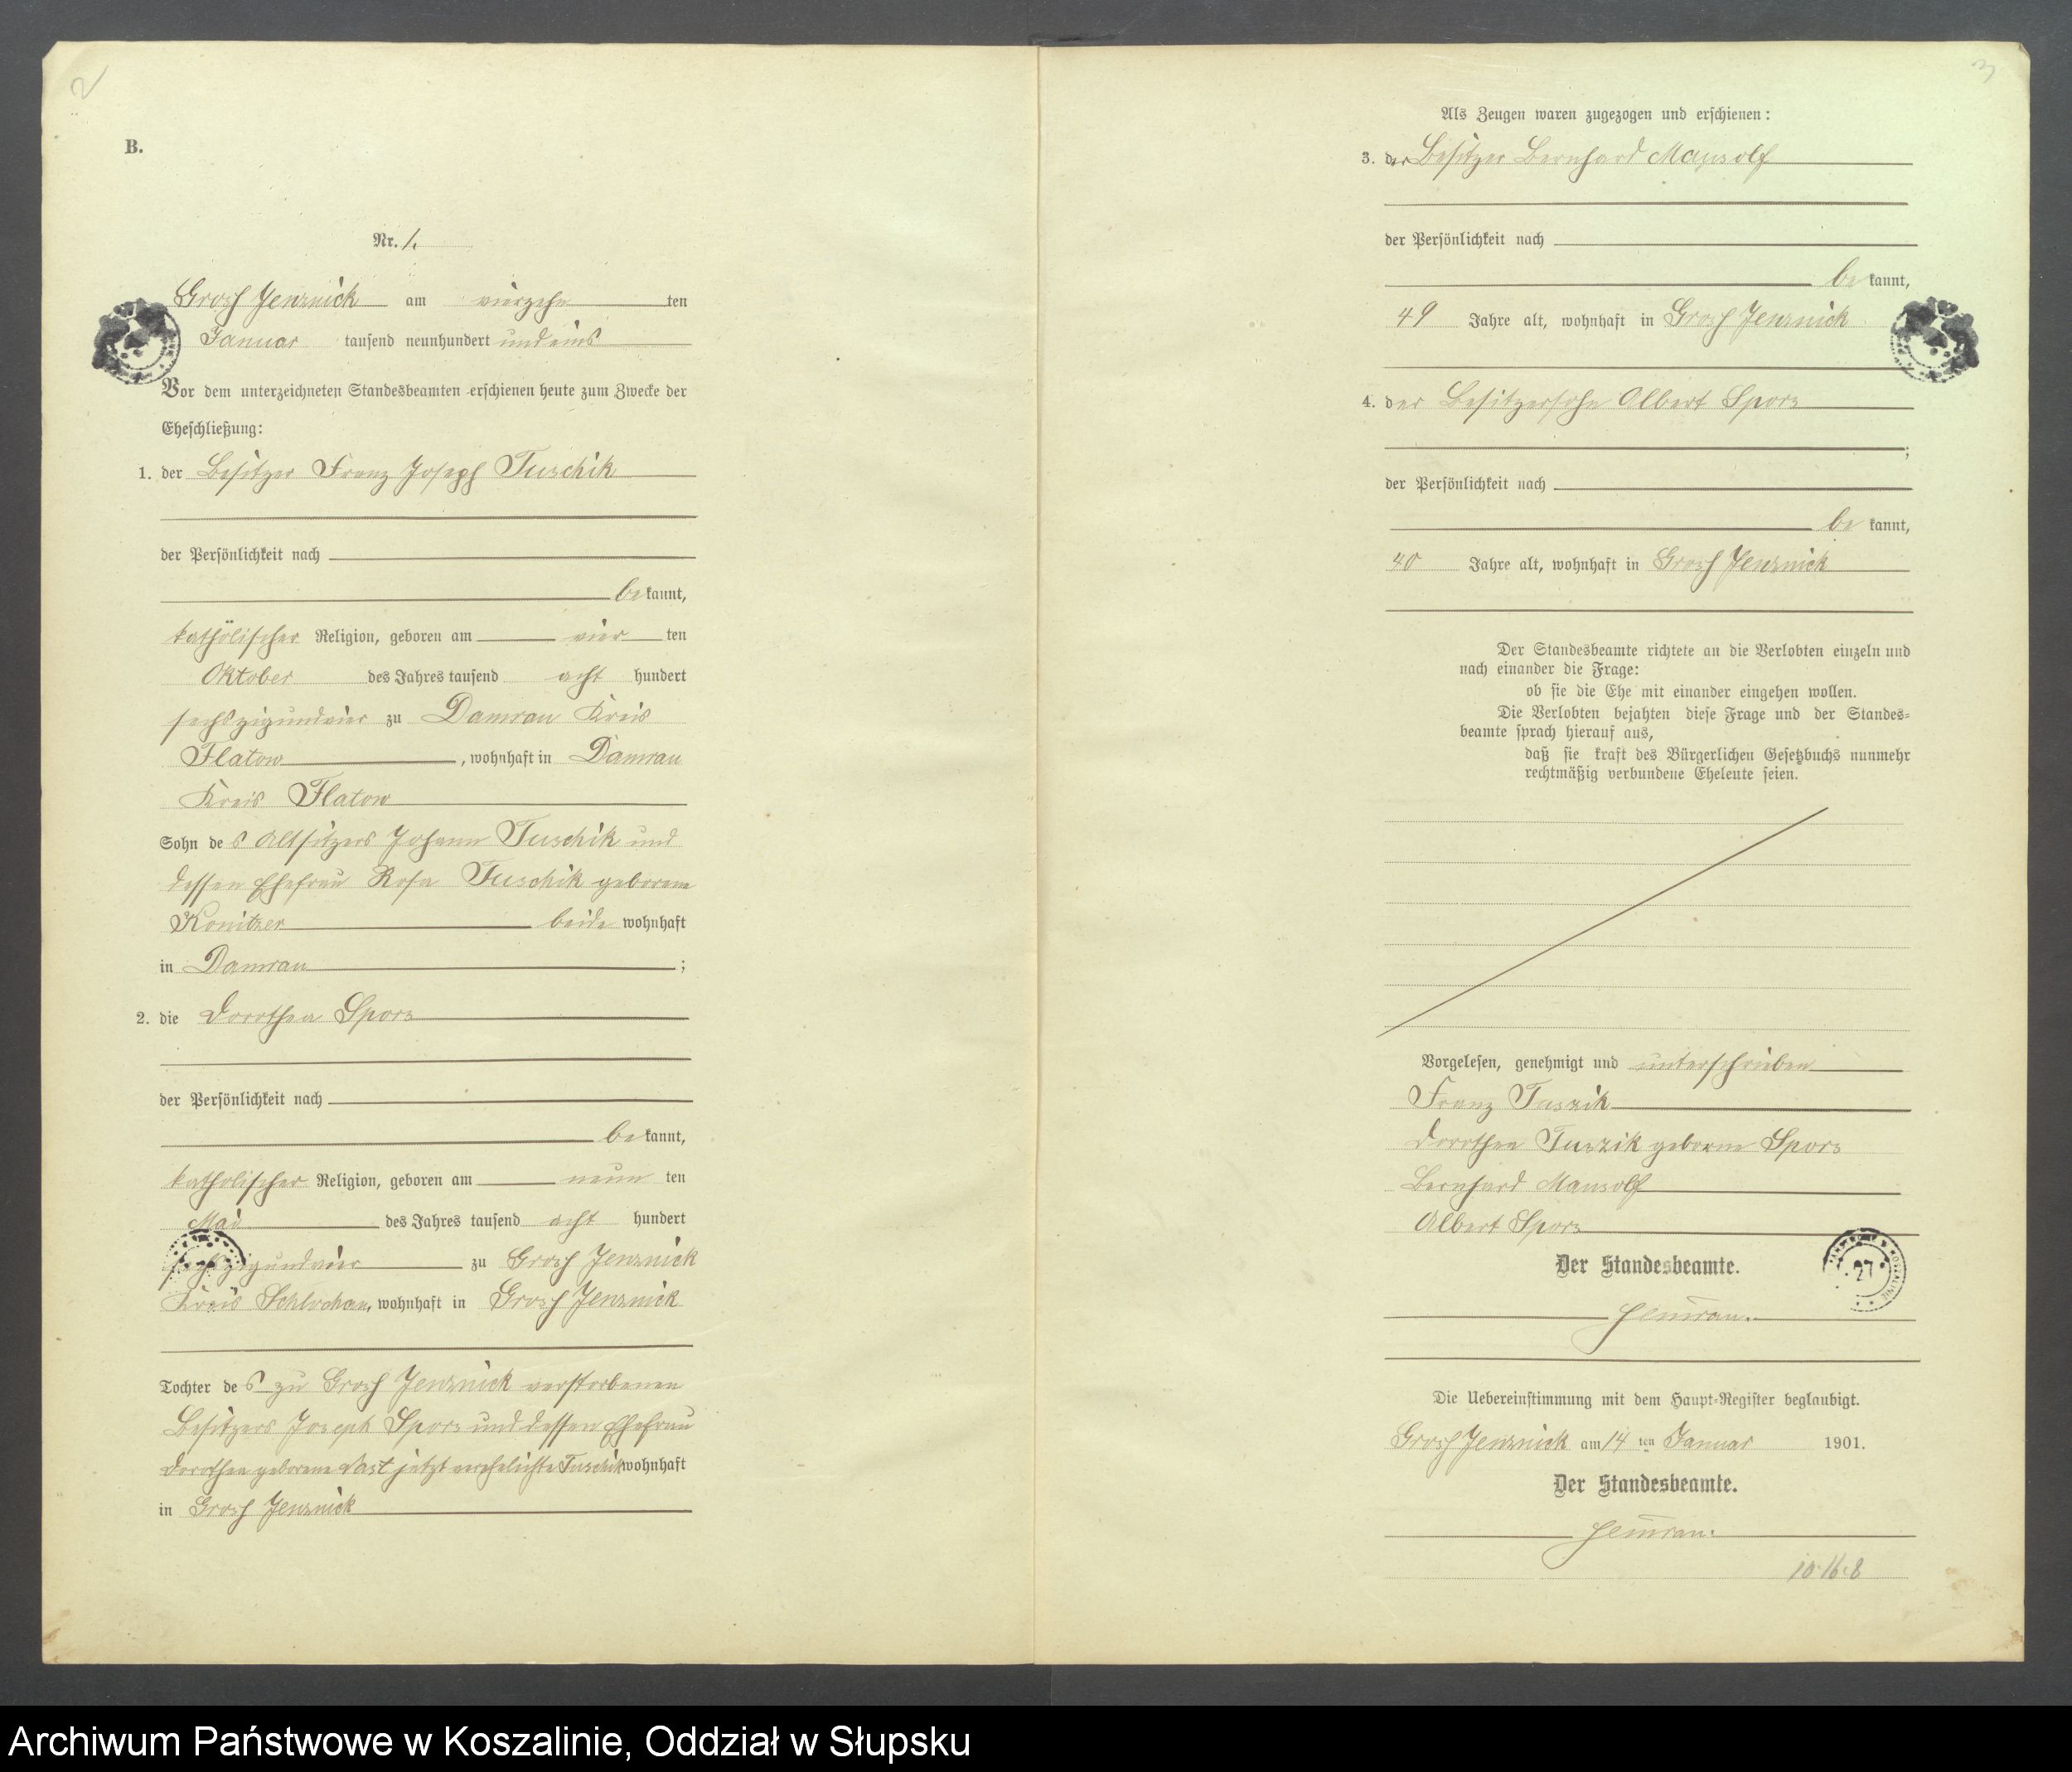 2
B.
Nr. 1.
Groß Jenznick am vierzehn ten
Januar tausend neunhundert undeins
Vor dem unterzeichneten Standesbeamten erschienen heute zum Zwecke der
Eheschließung:
1. der Besitzer Franz Joseph Tuschik
der Persönlichkeit nach
be kannt,
katholischer Religion, geboren am vier ten
Oktober des Jahres tausend acht hundert
sechszigundvier zu Damrau Kreis
Flatow, wohnhaft in Damrau
Kreis Flatow
Sohn des Altsitzers Johann Tuschik und
dessen Ehefrau Rosa Tuschik geborene
Konitzer beide wohnhaft
in Damrau;
2. die Dorothea Spors
der Persönlichkeit nach
be kannt,
katholischer Religion, geboren am neun ten
Mai des Jahres tausend acht hundert
sechszigundvier zu Groß Jenznick
Kreis Schlochau, wohnhaft in Groß Jenznick
Tochter des zu Groß Jenznick verstorbenen
Besitzers Joseph Spors und dessen Ehefrau
Dorothea geborene jetzt verehelichte Tuschik wohnhaft
in Groß Jenznick
3
Als Zeugen waren zugezogen und erschienen:
3. der Besitzer Bernhard Mausolf
der Persönlichkeit nach
be kannt,
49 Jahre alt, wohnhaft in Groß Jenznick
4. der Besitzersohn Albert Spors
;
der Persönlichkeit nach
be kannt,
40 Jahre alt, wohnhaft in Groß Jenznick
Der Standesbeamte richtete an die Verlobten einzeln und
nach einander die Frage:
ob sie die Ehe mit einander eingehen wollen.
Die Verlobten bejahten diese Frage und der Standes-
beamte sprach hierauf aus,
daß sie kraft des Bürgerlichen Gesetzbuchs nunmehr
rechtmäßig verbundene Eheleute seien.
Vorgelesen, genehmigt und unterschrieben
Franz Tuszik
Dorothea Tuszik geborne Spors
Bernhard Mausolf
Albert Spors
Der Standesbeamte.
27
Die Uebereinstimmung mit dem Haupt-Register beglaubigt.
Groß Jenznick am 14 ten Januar 1901.
Der Standesbeamte.
10·16·8
Archiwum Państwowe w Koszalinie, Oddział w Słupsku